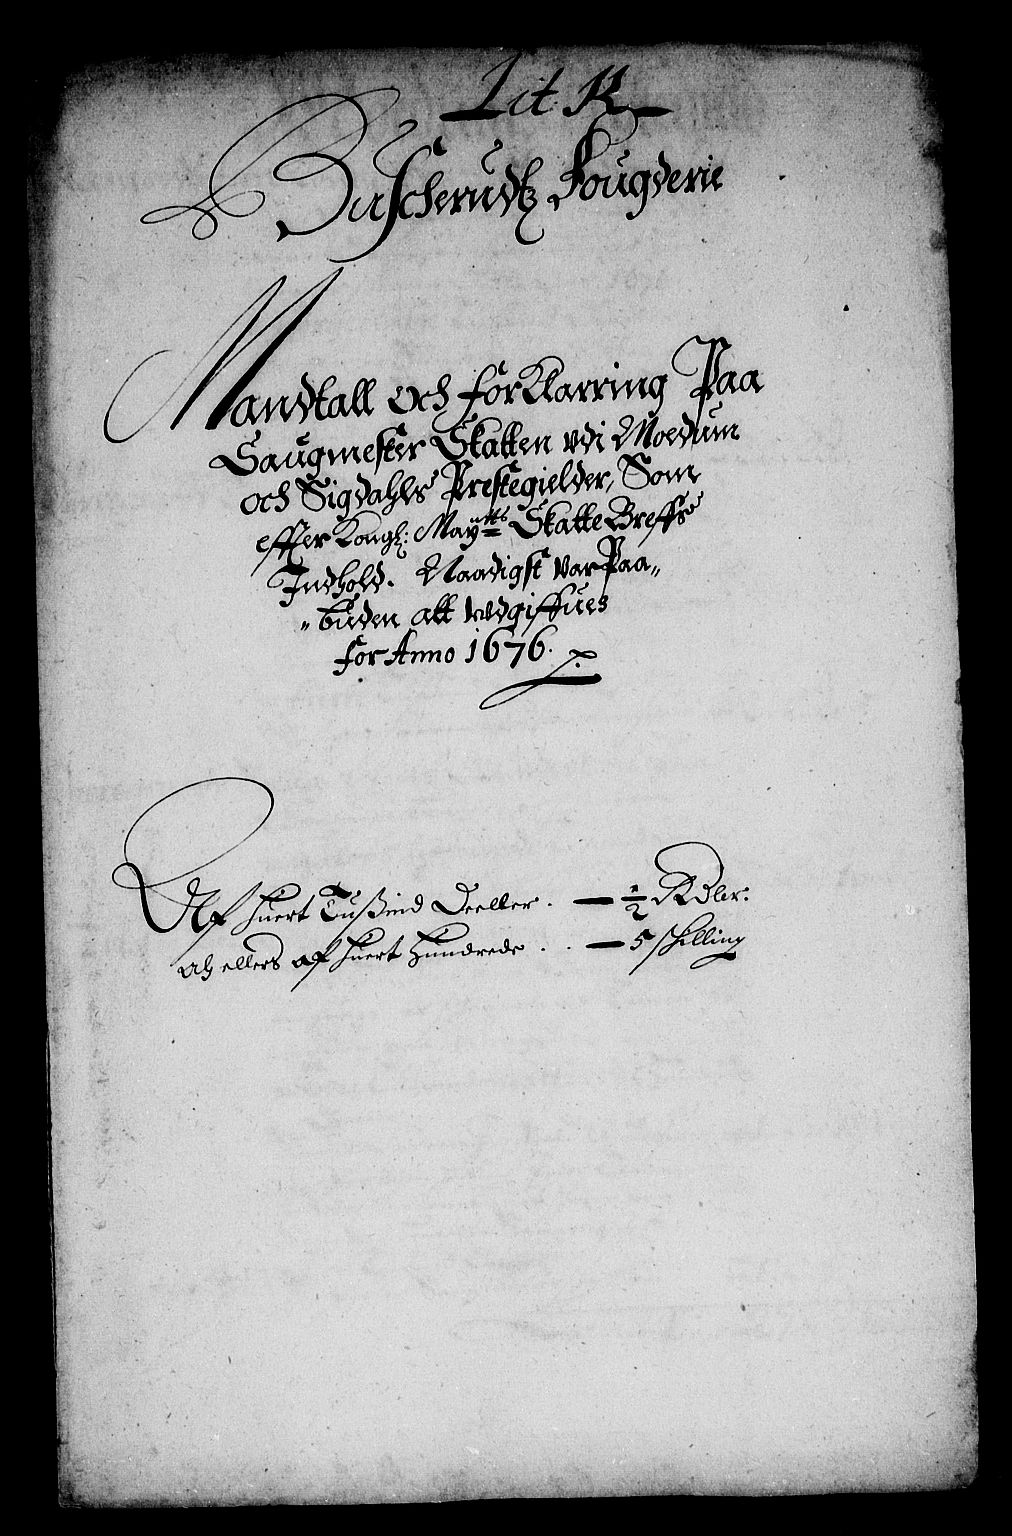 Lit. R
Buscherudtz Fougderie
Mandtall och forKlarring Paa
Saugmester Skatten vdi Moedum
och Sigdahls Prestegielder, Som
effter Kongl: Mayttz Skatte Breffs
Indhold. Naadigst var Paa„
„buden att vdgiffues
for Anno 1676.
Af huert Tußind Deeller. — ½ Rdler:
och ellers af huert Hundrede . . — 5 skilling